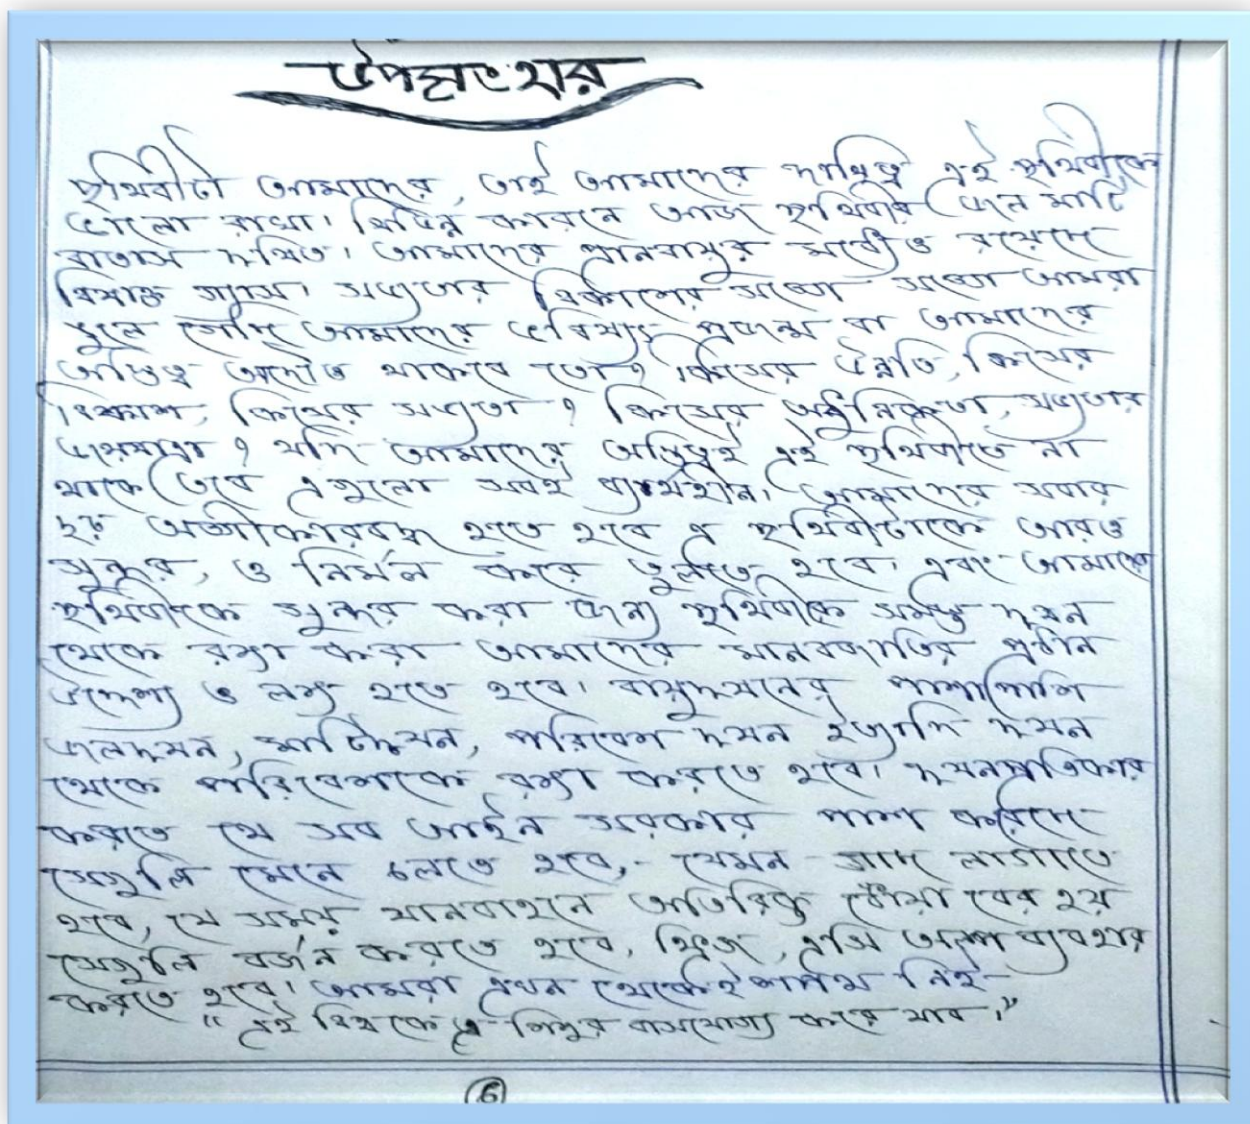 উপসংহার
পৃথিবীটা আমাদের, তাই আমাদের দায়িত্ব এই পৃথিবীকে
ভালো রাখা। বিভিন্ন কারনে আজ পৃথিবীর জল মাটি
বাতাস দূষিত। আমাদের প্রানবায়ুর মধ্যেও রয়েছে
বিষাক্ত গ্যাস। সভ্যতার বিকাশের সঙ্গে সঙ্গে আমরা
ভুলে গেছি আমাদের ভবিষ্যৎ প্রজন্ম বা আমাদের
অস্তিত্ব আদৌও থাকবে তো? কিসের উন্নতি, কিসের
বিকাশ, কিসের সভ্যতা? কিসের আধুনিকতা, সভ্যতার
জয়যাত্রা? যদি আমাদের অস্তিত্বই এই পৃথিবীতে না
থাকে তবে এগুলো সবই ব্যর্থহীন। আমাদের সবার
দৃঢ় অঙ্গীকারবদ্ধ হতে হবে এ পৃথিবীটাকে আরও
সুন্দর, ও নির্মল করে তুলতে হবে। এবং আমাদের
পৃথিবীকে সুন্দর করা জন্য পৃথিবীকে সমস্ত দূষন
থেকে রক্ষা করা আমাদের মানবজাতির প্রধান
উদ্দেশ্য ও লক্ষ্য হতে হবে। বায়ুদূষনের পাশাপাশি
জলদূষন, মাটিদূষন, পরিবেশ দূষন ইত্যাদি দূষন
থেকে পরিবেশকে রক্ষা করতে হবে। দূষনপ্রতিকার
করতে যে সব আইন সরকার পাশ করেছে
সেগুলি মেনে চলতে হবে,- যেমন - গাছ লাগাতে
হবে, যে সমস্ত যানবাহনে অতিরিক্ত ধোঁয়া বের হয়
সেগুলি বর্জন করতে হবে, ফ্রিজ, এসি অল্প ব্যবহার
করতে হবে। আমরা এখন থেকেই শপথ নিই-
"এই বিশ্বকে এ-শিশুর বাসযোগ্য করে যাব।"
৬